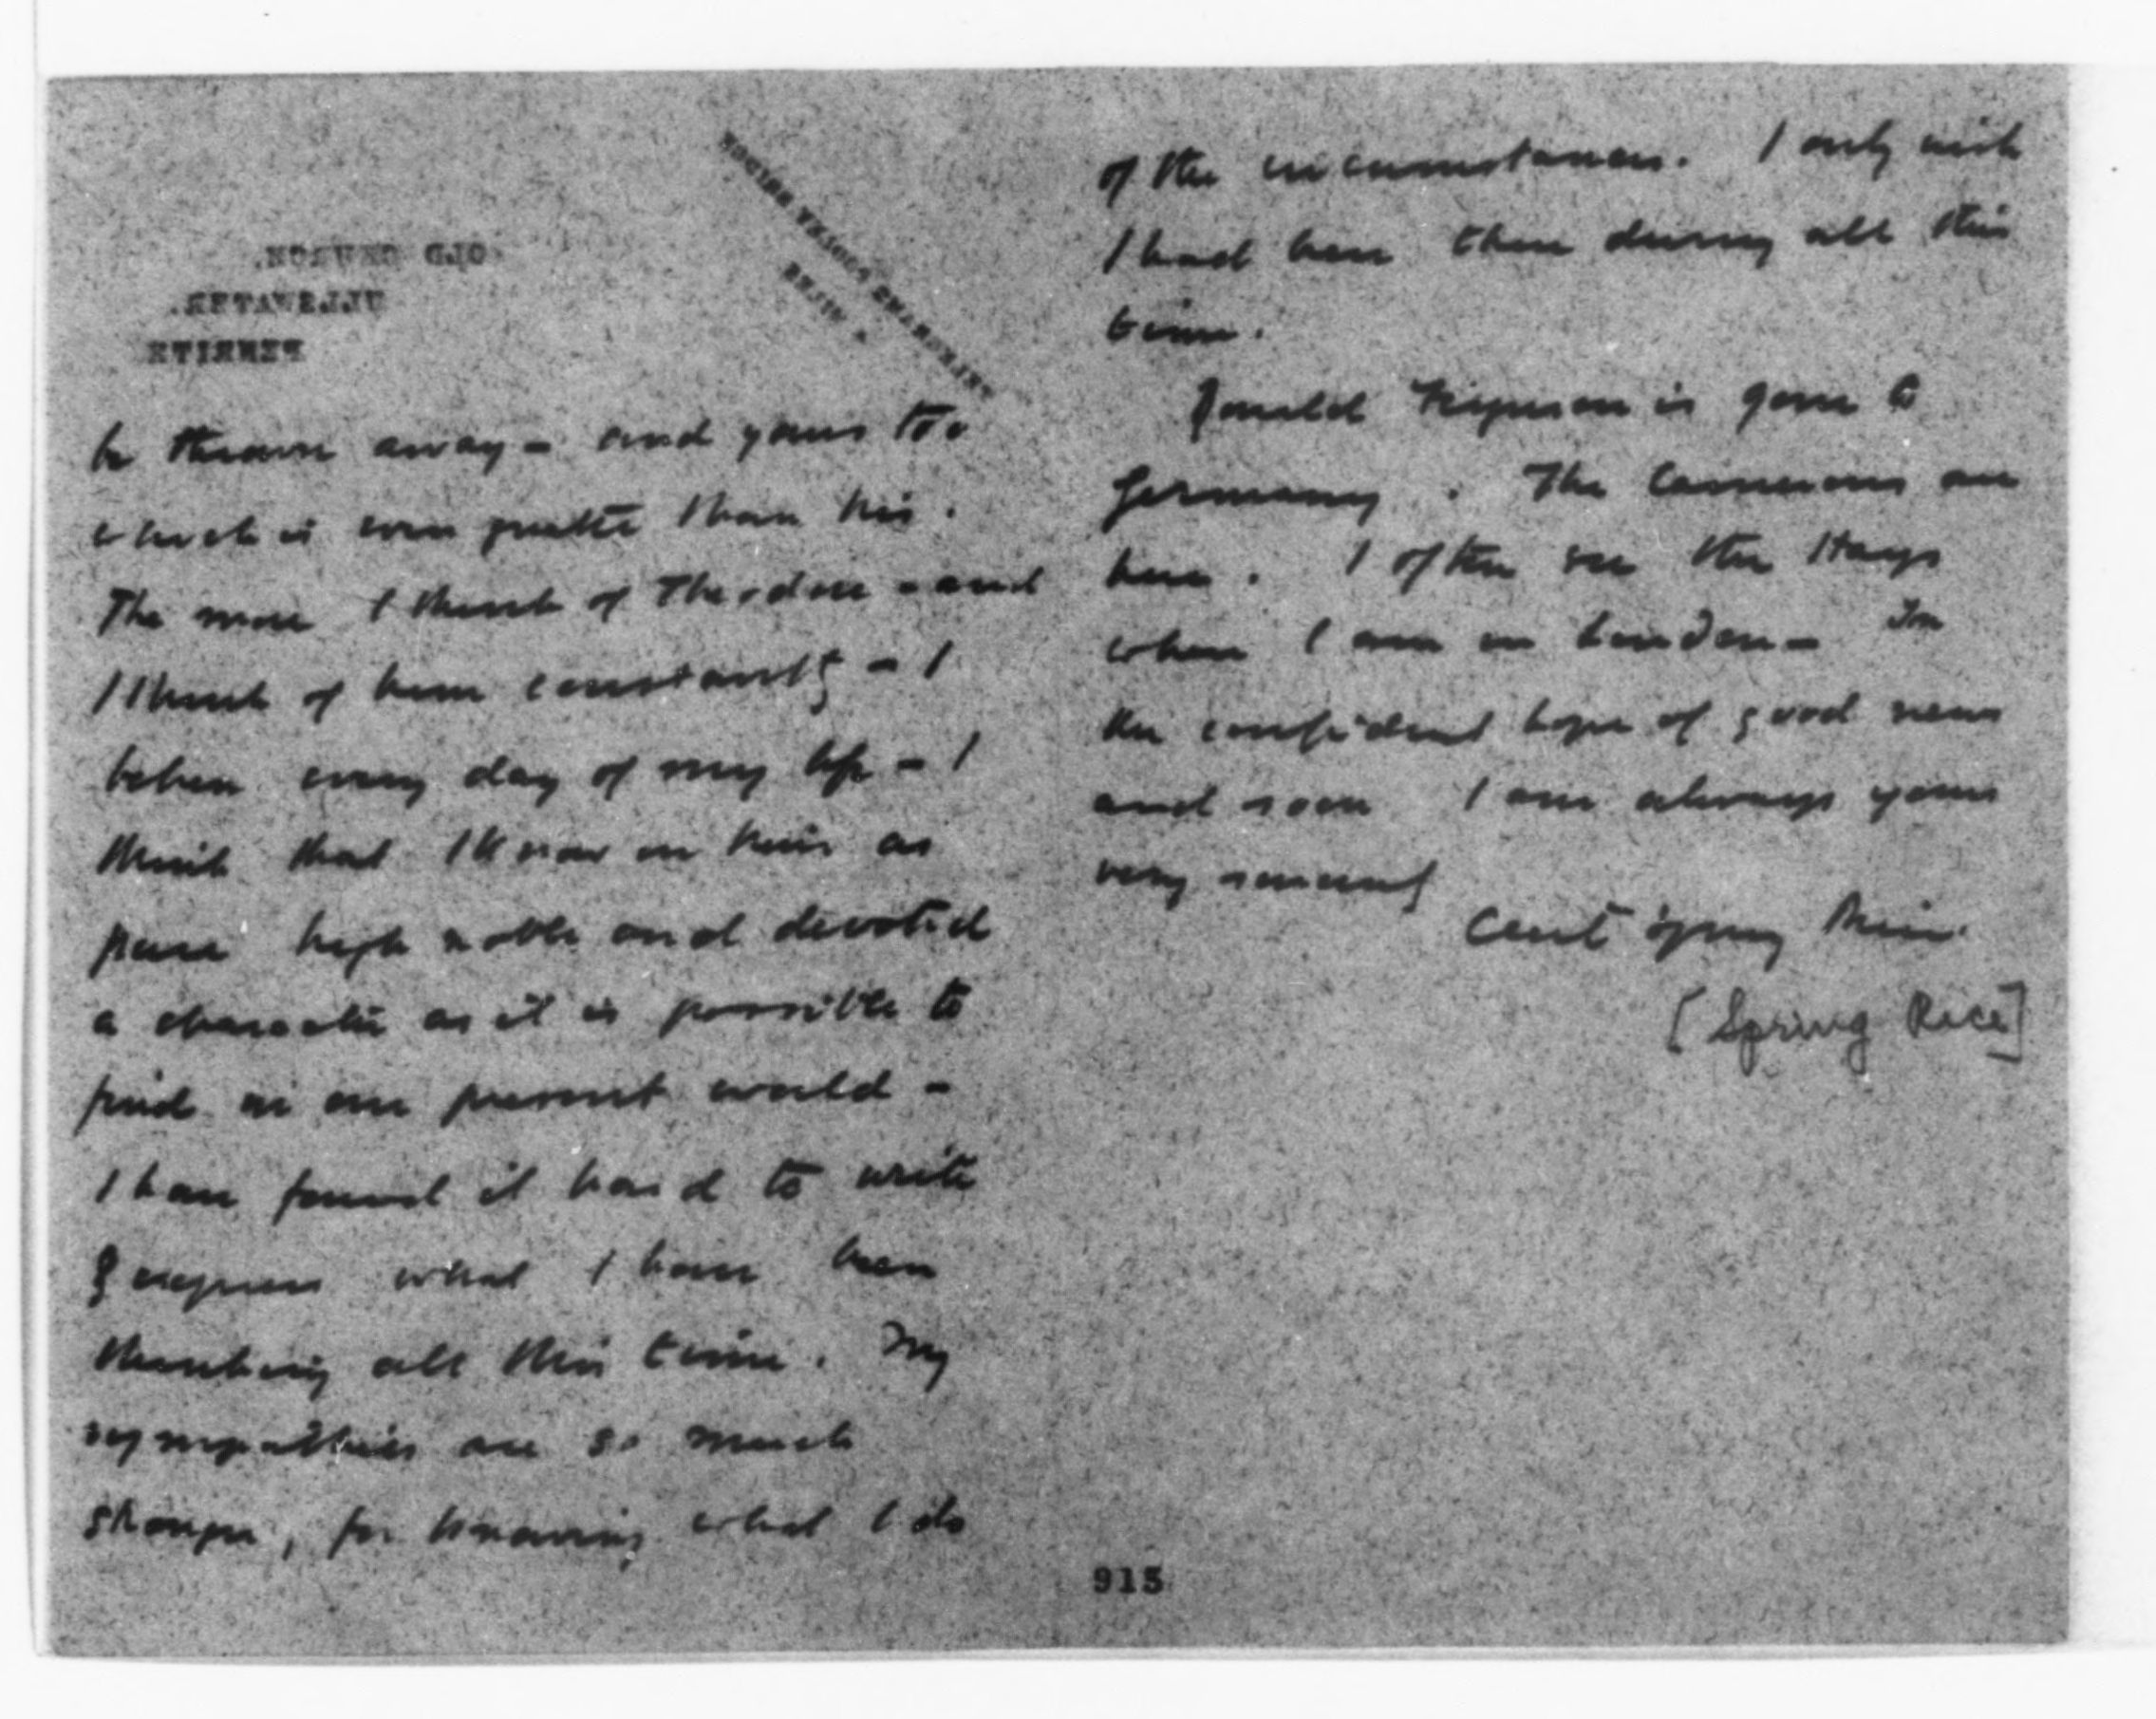 OLD CHURCH.
ULLSWATER.
PENRITH
TELEGRAMS POOLEY BRIDGE
4 MILES
be thrown away – and yours too
which is even greater than his.
The more I think of Theodore – and
I think of him constantly – I
believe every day of my life – I
think that I know in him as
pure high noble and devoted
a character as it is possible to
find in our present world –
I have found it hard to write
& express what I have been
thinking all this time. My
sympathies are so much
stronger, for knowing what I do
of the circumstances. I only wish
I had been there during all this
time.
Ronald Ferguson is gone to
Germany. The Camerons are
here. I often see the Hays
when I am in London – In
the confident hope of good news
and soon I am always yours
very sincerely
Cecil Spring Rice.
[Spring Rice]
915